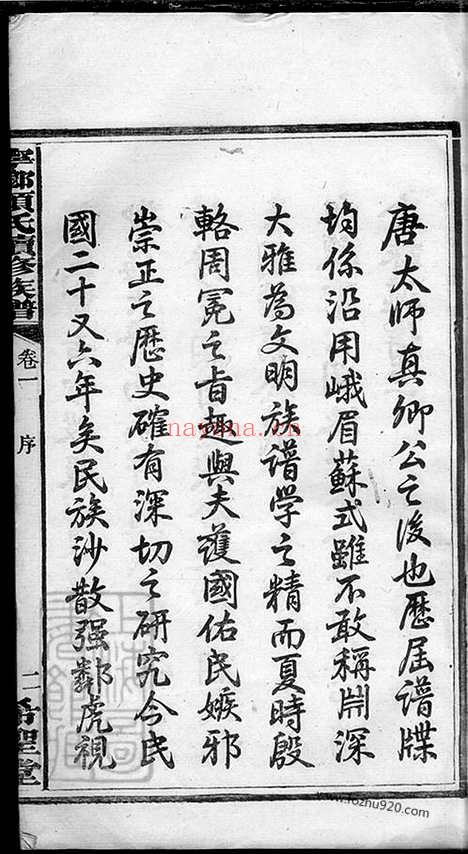 唐太師真卿公之後也歷屆譜牒
均係沿用峨眉蘇式雖不敢稱淵深
大雅為文明族譜学之精而夏時殷
輅周冕之旨趣與夫護國佑民嫉邪
崇正之歷史確有深切之研究今民
國二十又六年矣民族沙散强鄰虎視
寧鄉顏氏續修族譜
卷一
序
二
希聖堂
nayona.cn
www.fozhu920.com